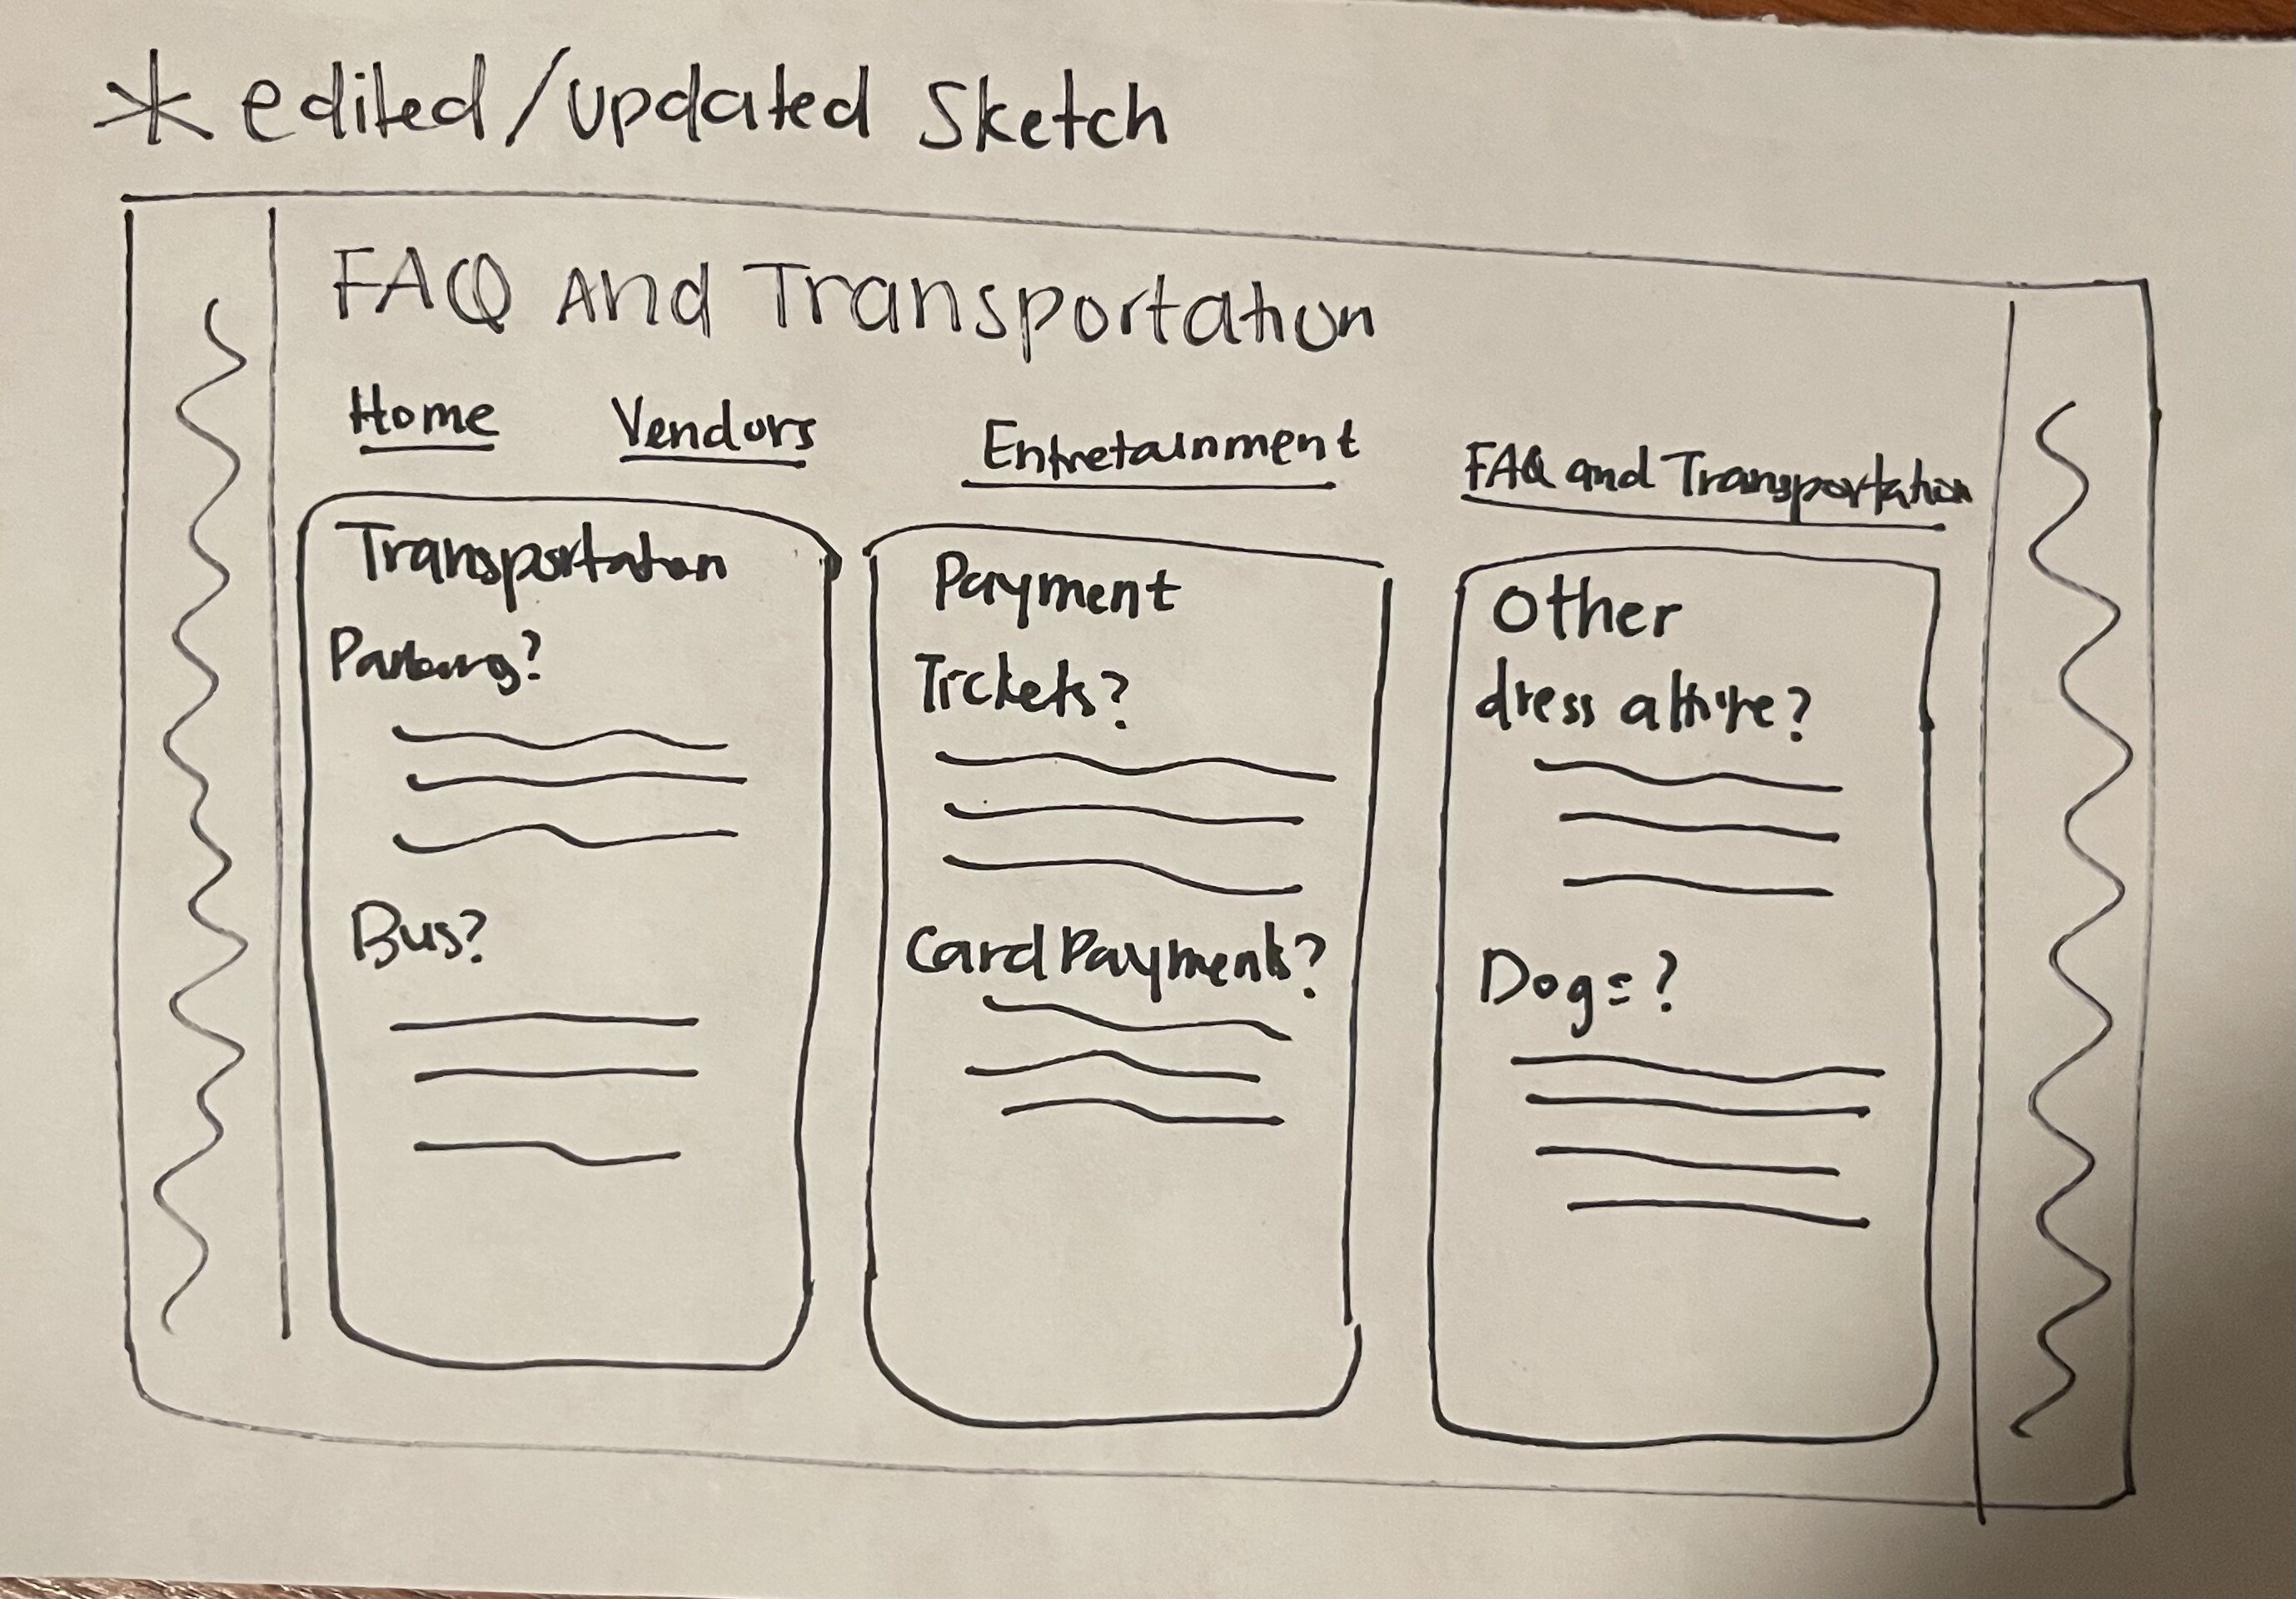 * edited/updated Sketch
FAQ and Transportation
Home Vendors Entretainment FAQ and Transportation
Transportation
Parking?
Bus?
Payment
Tickets?
Card Payments?
Other
dress attire?
Dogs?